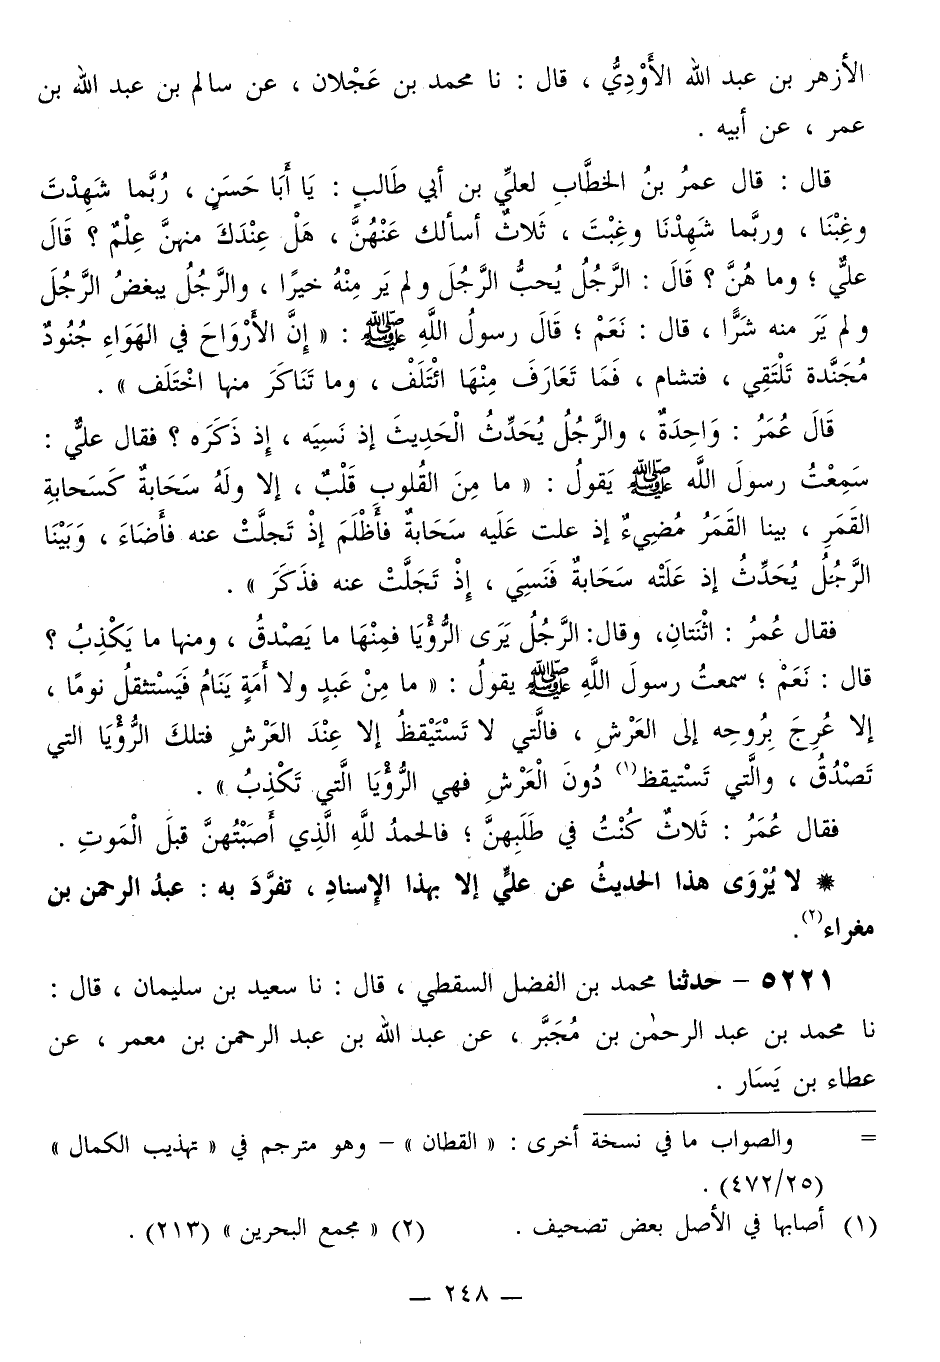 الأزهر بن عبد الله الأَوْدِيُّ ، قال : نا محمد بن عَجْلان ، عن سالم بن عبد الله بن
عمر ، عن أبيه .
قال : قال عمرُ بنُ الخطَّابِ لعليِّ بن أبي طَالبٍ : يَا أَبَا حَسَنٍ ، رُبَّما شَهِدْتَ
وغِبْنَا ، وربَّما شَهِدْنَا وغِبْتَ ، ثَلاثٌ أسألك عَنْهُنَّ ، هَلْ عِنْدَكَ منهنَّ عِلْمٌ ؟ قَالَ
عليٌّ ؛ وما هُنَّ ؟ قَالَ : الرَّجُلُ يُحبُّ الرَّجُلَ ولم يَر مِنْهُ خيرًا ، والرَّجُلُ يبغضُ الرَّجُلَ
ولم يَرَ منه شرًّا ، قال : نَعَمْ ؛ قَالَ رسولُ اللَّهِ ﷺ : « إنَّ الأَرْوَاحَ في الهَوَاءِ جُنُودٌ
مُجَنَّدة تَلْتَقِي ، فتشام ، فَمَا تَعَارَفَ مِنْهَا ائْتَلَفْ ، وما تَنَاكَرَ منها اخْتَلَف » .
قَالَ عُمَرُ : وَاحِدَةٌ ، والرَّجُلُ يُحَدِّثُ الْحَدِيثَ إذ نَسِيَه ، إذ ذَكَرَه ؟ فقال عليٌّ :
سَمِعْتُ رسولَ الله ﷺ يَقولُ : « ما مِنَ القُلوبِ قَلْبٌ ، إلا ولَهُ سَحَابةٌ كَسَحابةِ
القَمَرِ ، بينا القَمَرُ مُضيءٌ إذ علت عَلَيه سَحَابةٌ فأَظْلَمَ إذْ تَجلَّتْ عنه فأضَاءَ ، وَبَيْنَا
الرَّجُلُ يُحَدِّثُ إذ عَلَتْه سَحَابةٌ فَنَسِيَ ، إِذْ تَجَلَّتْ عنه فذَكَرَ » .
فقال عُمرُ : اثْنَتانِ، وقال: الرَّجُلُ يَرَى الرُّؤْيَا فمِنْهَا ما يَصْدقُ ، ومنها ما يَكْذِبُ ؟
قال : نَعَمْ ؛ سمعتُ رسولَ اللَّهِ ﷺ يقولُ : « ما مِنْ عَبدٍ ولا أمَةٍ يَنَامُ فَيَسْتثقلُ نومًا ،
إلا عُرِجَ بِرُوحِه إلى العَرْشِ ، فالَّتي لا تَسْتَيْقظُ إلا عِنْدَ العَرْشِ فتلكَ الرُّؤْيَا التي
تَصْدُقُ ، والَّتي تَسْتيقظ(١) دُونَ الْعَرْشِ فهي الرُّؤْيَا الَّتي تَكْذِبُ » .
فقال عُمَرُ : ثَلاثٌ كُنْتُ في طَلَبِهنَّ ؛ فالحمدُ للَّهِ الَّذِي أَصَبْتُهنَّ قبلَ الْمَوتِ .
* لا يُرْوَى هذا الحديثُ عن عليٍّ إلا بهذا الإسنادِ ، تفرَّدَ به : عبدُ الرحمن بن
مغراء(٢).
٥٢٢١ – حدثنا محمد بن الفضل السقطي ، قال : نا سعيد بن سليمان ، قال :
نا محمد بن عبد الرحمٰن بن مُجَبَّر ، عن عبد الله بن عبد الرحمن بن معمر ، عن
عطاء بن يَسَار .
= والصواب ما في نسخة أخرى : « القطان » – وهو مترجم في « تهذيب الكمال »
(٤٧٢/٢٥) .
(١) أصابها في الأصل بعض تصحيف . (٢) « مجمع البحرين » (٢١٣) .
– ٢٤٨ –